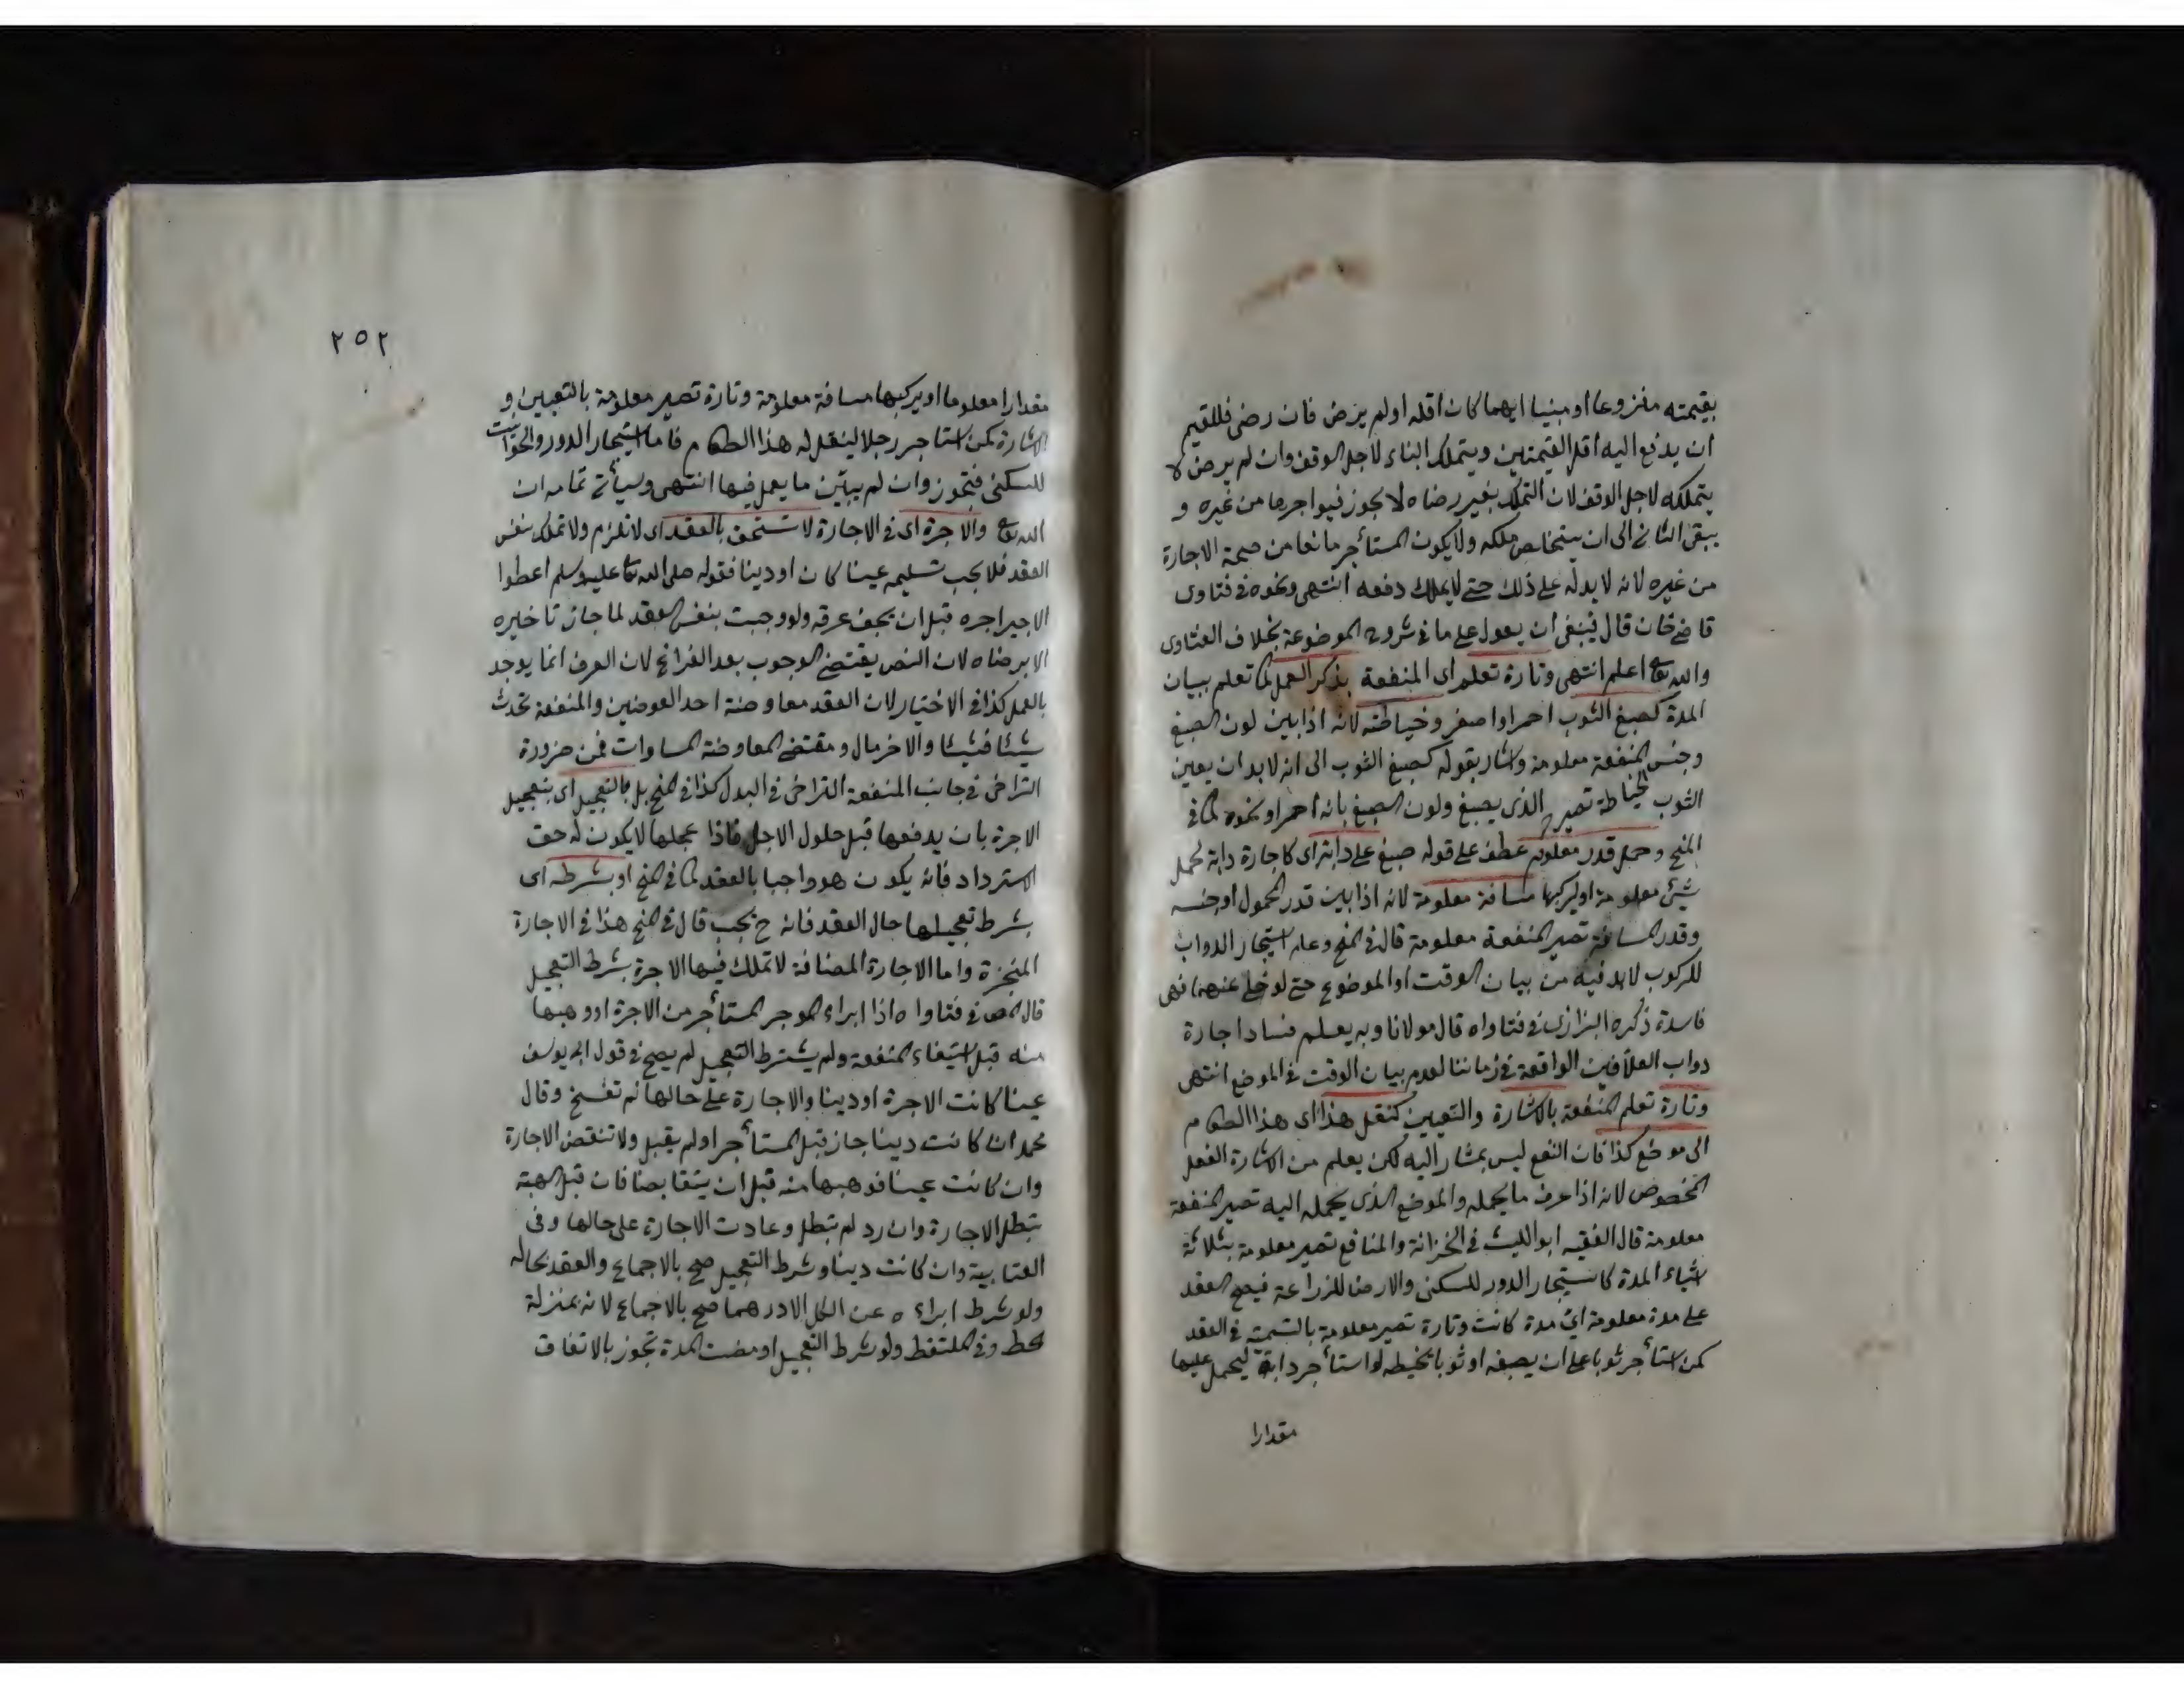 بقيمته منزوعا او مبنيا ايهما كان اقله اولم يرض فان رضى فللقيم
ان يدفع اليه اقل القيمتين ويتملك البناء لاجل الوقف وان لم يرض لا
يتملكه لاجل الوقف لان التملك بغير رضاه لا يجوز فيواجرها من غيره و
يبقى الثانى الى ان يتخلص ملكه ولا يكون المستأجر مانعا من صحة الاجارة
من غيره لانه لا يدله على ذلك حتى لا يملك دفعه انتهى ونحوه فى فتاوى
قاضى خان قال فينبغى ان يعول على ما فى شروح الموضوعة بخلاف الفتاوى
والله تعالى اعلم انتهى وتارة تعلم اى المنفعة بذكر العمل كما تعلم ببيان
المدة كصبغ الثوب احمر او اصفر وخياطته لانه اذا بين لون الصبغ
وجنس المنفعة معلومة واشار بقوله كصبغ الثوب الى انه لا بد ان يعين
الثوب الخياطة تصير الذى يصبغ ولون الصبغ بانه احمر او نحوه كما فى
المنح وحمل قدر معلوم عطف على قوله صبغ على دابة اى كاجارة دابة لحمل
شئ معلومة او ليركبها مسافة معلومة لانه اذا بين قدر المحمول او جنسه
وقدر المسافة تصير المنفعة معلومة قال فى المنح وعلم استيجار الدواب
للركوب لا بد فيه من بيان الوقت او الموضوع حتى لو خلى عنهما فهى
فاسدة ذكره البزازى فى فتاواه قال مولانا وبه يعلم فساد اجارة
دواب العلافين الواقعة فى زماننا لعدم بيان الوقت فى الموضع انتهى
وتارة تعلم المنفعة بالاشارة والتعيين كنقل هذا اى هذا الطعام
الى موضع كذا فان النفع ليس بمشار اليه لكن يعلم من الاشارة الفعل
المخصوص لانه اذا عرف ما يحمله والموضع الذى يحمله اليه تصير المنفعة
معلومة قال الفقيه ابو الليث فى الخزانة والمنافع تصير معلومة بثلاثة
اشياء المدة كاستيجار الدور للسكنى والارض للزراعة فيصح العقد
على مدة معلومة اى مدة كانت وتارة تصير معلومة بالتسمية فى العقد
كمن استأجر ثوبا على ان يصبغه او ثوبا يخيطه او استأجر دابة ليحمل عليها
مقدارا
٢٥٢
مقدارا معلوما او يركبها مسافة معلومة وتارة تصير معلومة بالتعيين و
الاشارة كمن استاجر رجلا لينقل له هذا الطعام فاما استيجار الدور والحوانيت
للسكنى فتجوز وان لم يبين ما يعمل فيها انتهى وسيأتى تمامه ان
الله تعالى والاجرة اى فى الاجارة لا تستحق بالعقد اى لا تلزم ولا تملك بنفس
العقد فلا يجب تسليمه عينا كان او دينا فقوله صلى الله تعالى عليه وسلم اعطوا
الاجير اجره قبل ان يجف عرقه ولو وجبت بنفس العقد لما جاز تاخيره
الا برضاه لان النص يقتضى الوجوب بعد الفراغ لان العرق انما يوجد
بالعمل كذا فى الاختيار لان العقد معاوضة احد العوضين والمنفعة تحدث
شيئا فشيئا والاخر مال ومقتضى المعاوضة المساوات فمن ضرورة
التراخى فى جانب المنفعة التراخى فى البدل كذا فى المنح بل بالتعجيل اى بتعجيل
الاجرة بان يدفعها قبل حلول الاجل فاذا عجلها لا يكون له حق
الاسترداد فانه يكون هو واجبا بالعقد كما فى المنح او بشرطه اى
بشرط تعجيلها حال العقد فانه ح يجب قال فى المنح هذا فى الاجارة
المنجزة واما الاجارة المضافة لا تملك فيها الاجرة بشرط التعجيل
قال المص فى فتاواه اذا ابراء الموجر المستأجر من الاجرة او وهبها
منه قبل استيفاء المنفعة ولم يشترط التعجيل لم يصح فى قول ابى يوسف
عينا كانت الاجرة او دينا والاجارة على حالها لم تفسخ وقال
محمد ان كانت دينا جاز قبل المستأجر او لم يقبل ولا تنقض الاجارة
وان كانت عينا فوهبها منه قبل ان يتقابضا فان قبل الهبة
تبطل الاجارة وان رد لم تبطل وعادت الاجارة على حالها وفى
العتابية وان كانت دينا وشرط التعجيل صح بالاجماع والعقد بحاله
ولو شرط ابراءه عن الكل الا درهما صح بالاجماع لانه بمنزلة
حط وفى الملتقط ولو شرط التعجيل او مضت المدة تجوز بالاتفاق